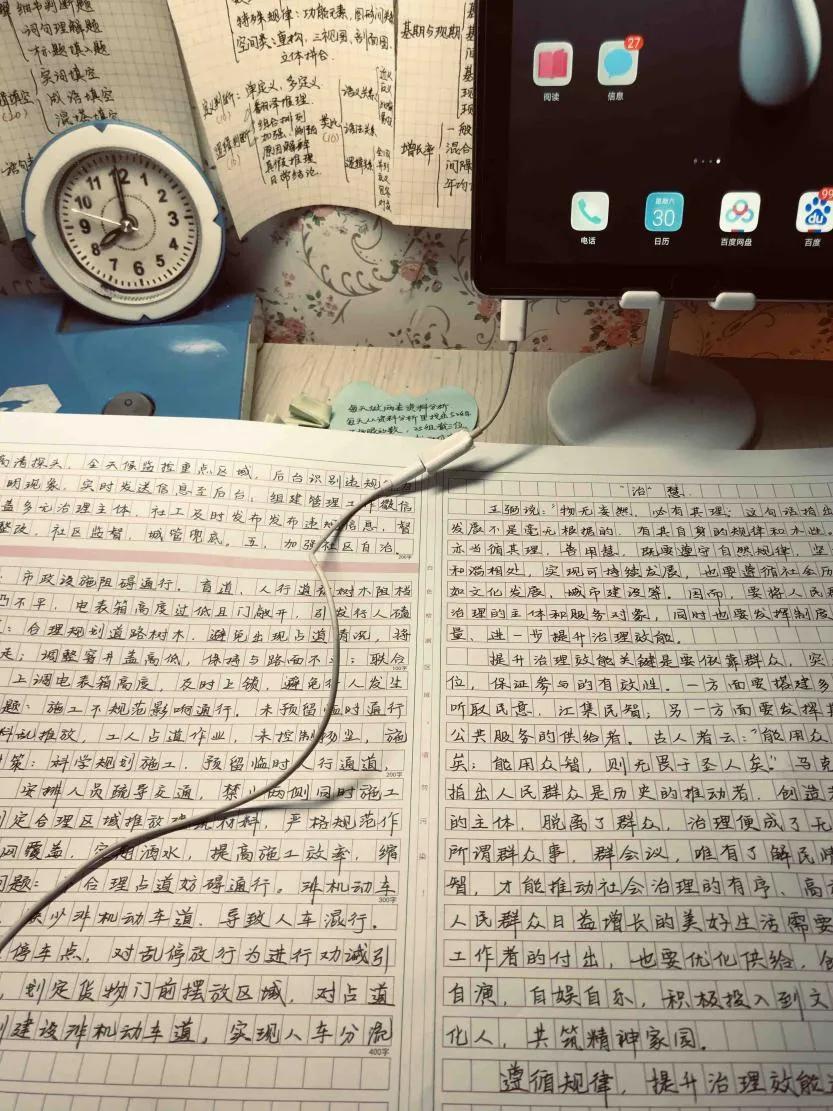 细节判断题
词句理解题
标题填入题
实词填空
成语填空
混搭填空
特殊规律：功能元素，图形间
空间类：重构，三视图，剖面图
立体拼合
定义判断：单定义，多定义
翻译推理
组合排列
原因解释
真假推理
日常结论
语义关系
语法关系
逻辑
基期与现期
增长率
一般
混合
间隔
年均
11 12 1 2 3 4 5 6 7 8 9
27
阅读
信息
星期六
30
99
du
电话
日历
百度网盘
百度
每天做两套资料分析
高清探头，全天候监控重点区域，后台识别违规
明现象，实时发送信息至后台；组建管理工作微信
盖多元治理主体，社工及时发布发布违规信息，督
整改，社区监督，城管兜底。五、加强社区自治。
200字
：市政设施阻碍通行。盲道、人行道有树木阻挡
凹不平，电表箱高度过低且门敞开，引发行人
：合理规划道路树木，避免出现占道情况，将
走；调整窨井盖高低，保持与路面不；联合
100字
上调电表箱高度，及时上锁，避免行人发生
题：施工不规范影响通行。未预留临时通行
料乱堆放，工人占道作业，未控制扬尘，施
策：科学规划施工，预留临时人行通道，
200字
安排人员疏导交通，禁止两侧同时施工
定合理区域堆放建筑材料，严格规范作
网覆盖，定期洒水，提高施工效率，缩
问题：不合理占道妨碍通行。非机动车
300字
缺少非机动车道，导致人车混行。
停车点，对乱停放行为进行劝诫引
，划定货物门前摆放区域，对占道
建设非机动车道，实现人车分流
400字
"治"慧
王弼说："物无妄然，必有其理，"这句话指出
发展不是毫无根据的，有其自身的规律和本性。
亦当循其理，善用慧，既要遵守自然规律，坚
和谐相处，实现可持续发展，也要遵循社会历
如文化发展，城市建设等。因而，要将人民群
治理的主体和服务对象，同时也要发挥制度
量，进一步提升治理效能。
提升治理效能关键是要依靠群众，突
位，保证参与的有效性。一方面要搭建多
听取民意，汇集民智；另一方面要发挥
公共服务的供给者。古人者云："能用众
矣；能用众智，则无畏于圣人矣"马克
指出人民群众是历史的推动者，创造者
的主体，脱离了群众，治理便成了无
所谓群众事，群会议，唯有了解民情
智，才能推动社会治理的有序、高
人民群众日益增长的美好生活需要
工作者的付出，也要优化供给，
自演，自娱自乐，积极投入到文
化人，共筑精神家园。
遵循规律，提升治理效能